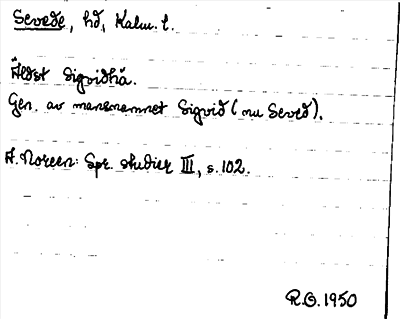 Sevede, hd, Kalm. l.
Äldst Sigvidhä.
Gen. av mansnamnet Sigvid (nu Seved).
A. Noreen: Spr. studier III, s. 102.
R.G. 1950